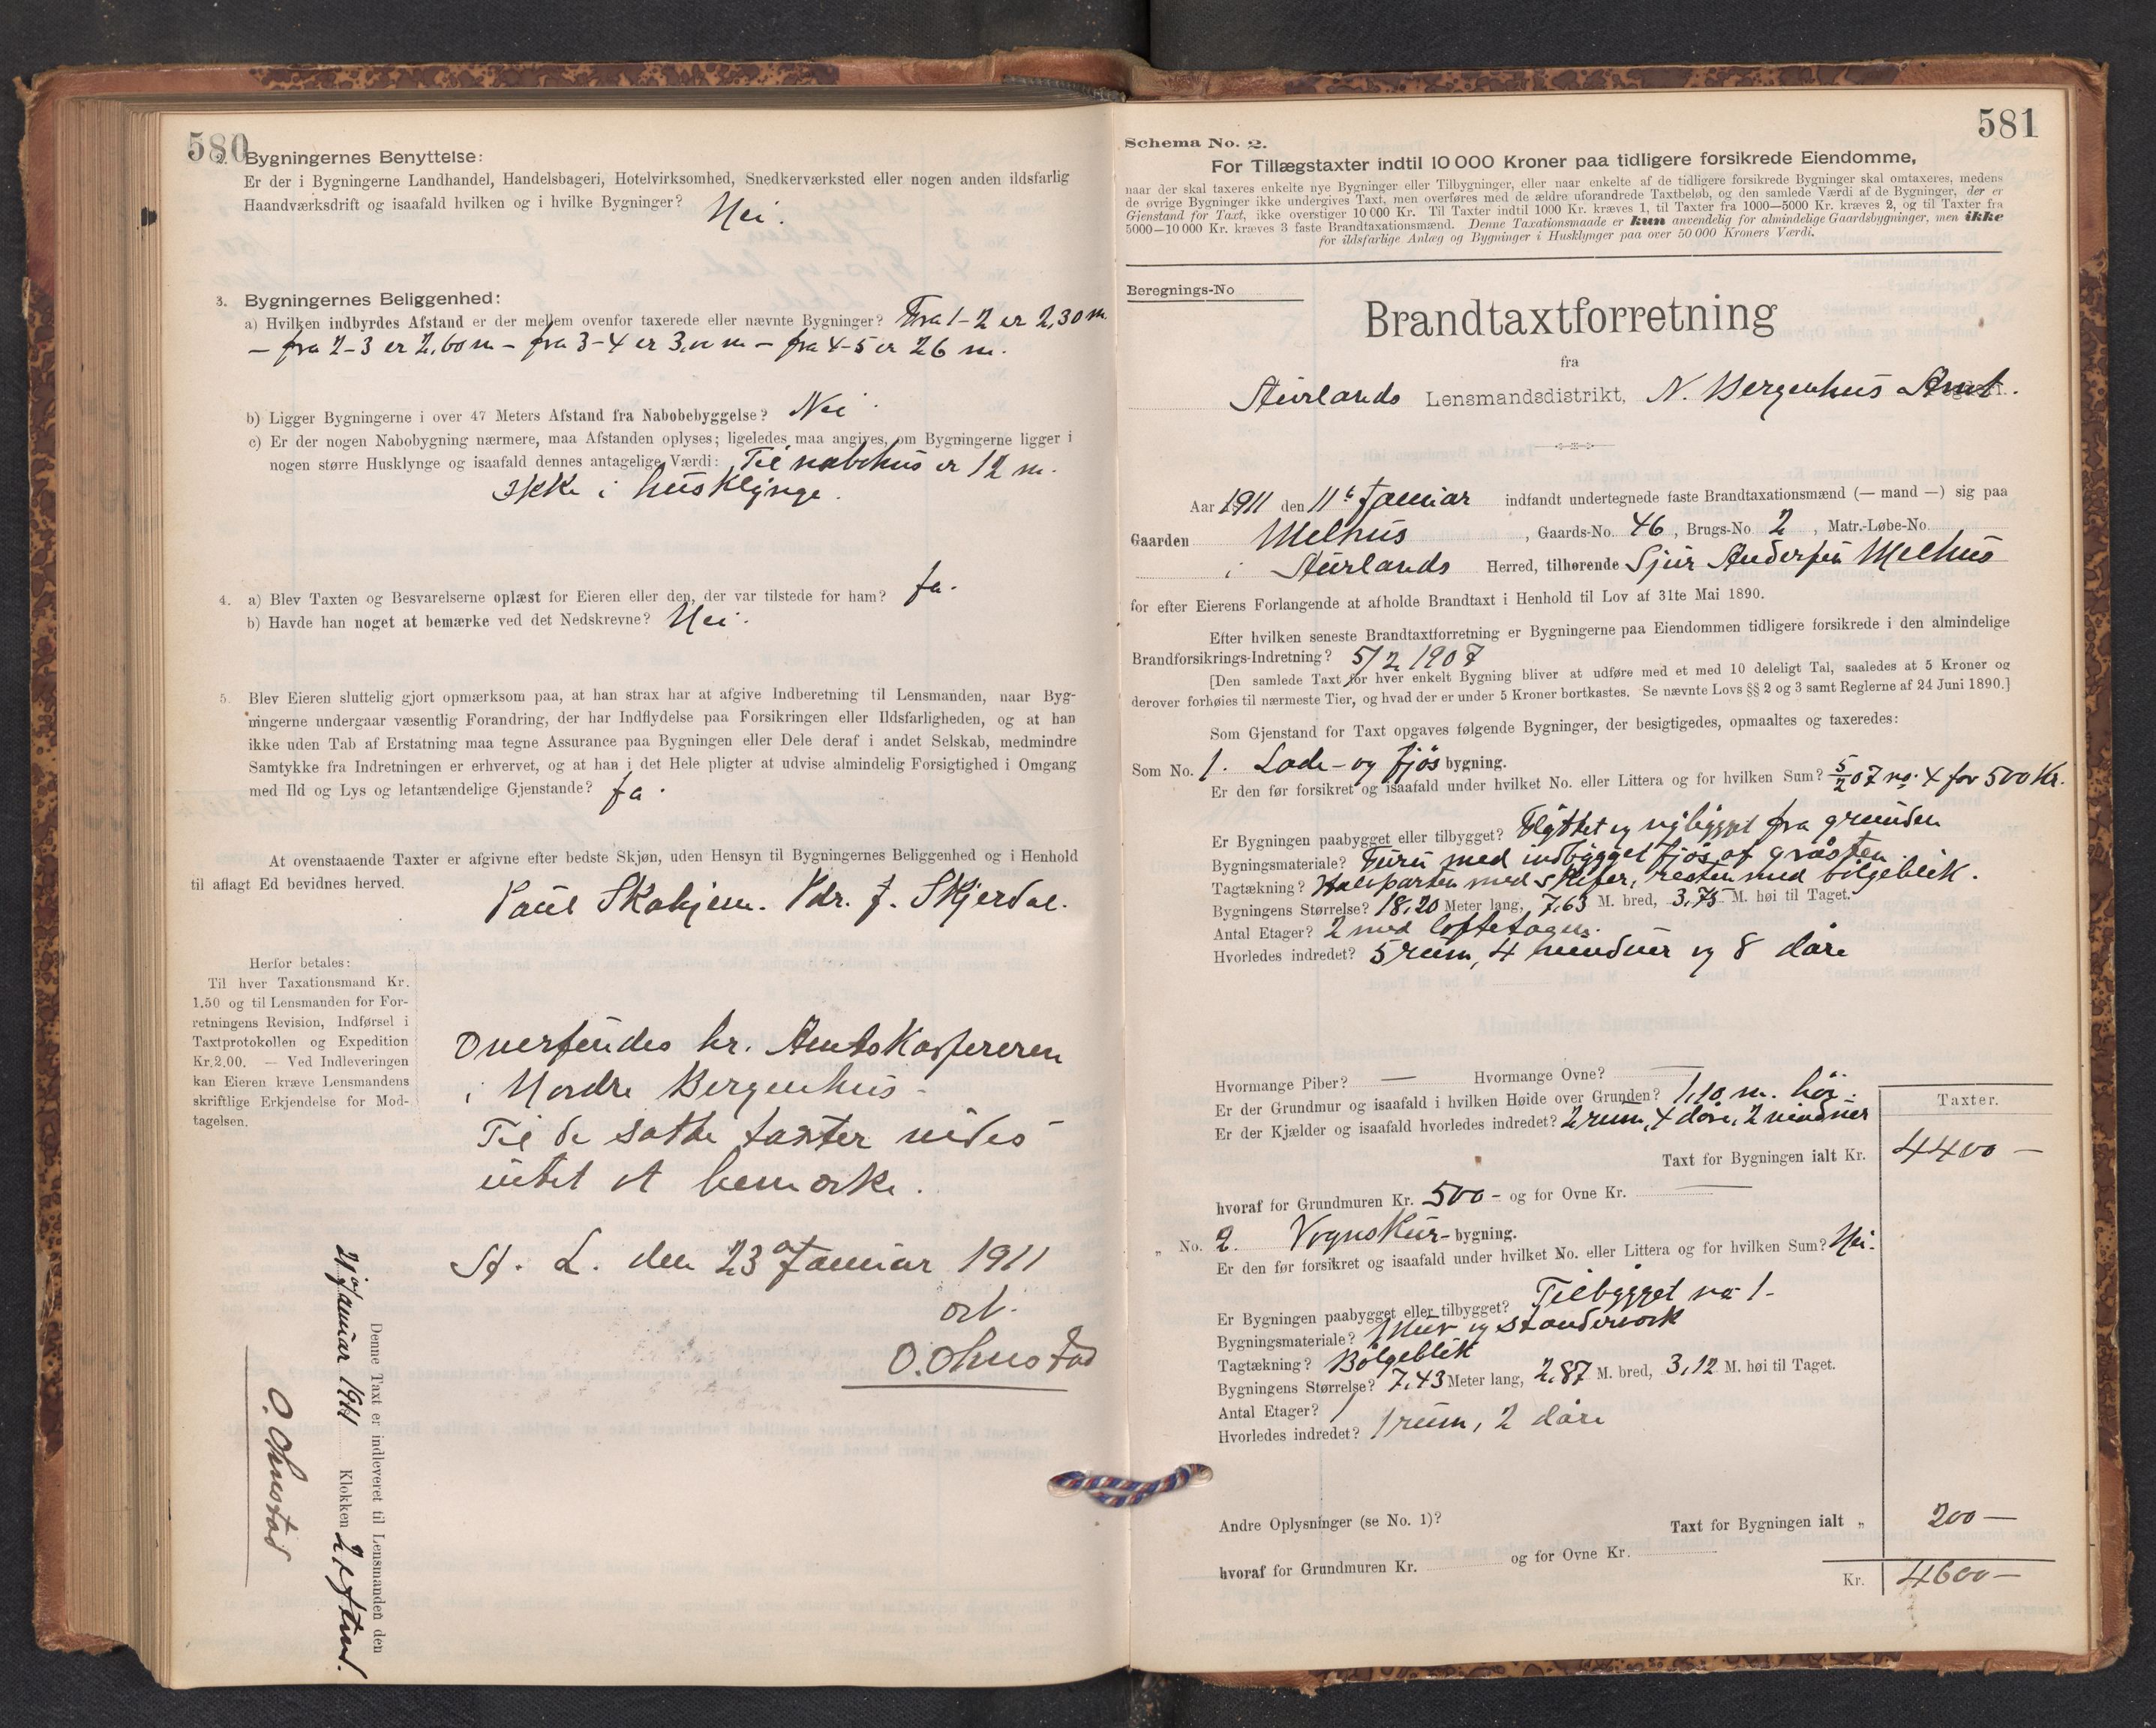 580
2. Bygningernes Benyttelse:
Er der i Bygningerne Landhandel, Handelsbageri, Hotelvirksomhed, Snedkerværksted eller nogen anden ildsfarlig
Haandværksdrift og isaafald hvilken og i hvilke Bygninger? Nei.
3. Bygningernes Beliggenhed:
a) Hvilken indbyrdes Afstand er der mellem ovenfor taxerede eller nævnte Bygninger? Fra 1-2 er 2,30 m.
- fra 2-3 er 2,60 m - fra 3-4 er 3,00 m - fra 4-5 er 26 m.
b) Ligger Bygningerne i over 47 Meters Afstand fra Nabobebyggelse? Nei.
c) Er der nogen Nabobygning nærmere, maa Afstanden oplyses; ligeledes maa angives, om Bygningerne ligger i
nogen større Husklynge og isaafald dennes antagelige Værdi: Til nabohus er 12 m.
Ikke i husklynge.
4. a) Blev Taxten og Besvarelserne oplæst for Eieren eller den, der var tilstede for ham? Ja.
b) Havde han noget at bemærke ved det Nedskrevne? Nei.
5. Blev Eieren sluttelig gjort opmærksom paa, at han strax har at afgive Indberetning til Lensmanden, naar Byg-
ningerne undergaar væsentlig Forandring, der har Indflydelse paa Forsikringen eller Ildsfarligheden, og at han
ikke uden Tab af Erstatning maa tegne Assurance paa Bygningen eller Dele deraf i andet Selskab, medmindre
Samtykke fra Indretningen er erhvervet, og at han i det Hele pligter at udvise almindelig Forsigtighed i Omgang
med Ild og Lys og letantændelige Gjenstande? Ja.
At ovenstaaende Taxter er afgivne efter bedste Skjøn, uden Hensyn til Bygningernes Beliggenhed og i Henhold
til aflagt Ed bevidnes herved.
Paul Skahjem. Pdr. J. Skjerdal.
Herfor betales:
Til hver Taxationsmand Kr.
1.50 og til Lensmanden for For-
retningens Revision, Indførsel i
Taxtprotokollen og Expedition
Kr.2.00. — Ved Indleveringen
kan Eieren kræve Lensmandens
skriftlige Erkjendelse for Mod-
tagelsen.
Oversendes hr. Amtskassereren
i Nordre Bergenhus-
Til de satte taxter vides
intet at bemærke.
St. L. den 23 Januar 1911
O. Ohnstad
Denne Taxt er indleveret til Lensmanden den
21 Januar 1911 Klokken 2 eftm.
O. Ohnstad
581
Schema No. 2.
For Tillægstaxter indtil 10 000 Kroner paa tidligere forsikrede Eiendomme,
naar der skal taxeres enkelte nye Bygninger eller Tilbygninger, eller naar enkelte af de tidligere forsikrede Bygninger skal omtaxeres, medens
de øvrige Bygninger ikke undergives Taxt, men overføres med de ældre uforandrede Taxtbeløb, og den samlede Værdi af de Bygninger, der er
Gjenstand for Taxt, ikke overstiger 10 000 Kr. Til Taxter indtil 1000 Kr. kræves 1, til Taxter fra 1000—5000 Kr. kræves 2, og til Taxter fra
5000—10 000 Kr. kræves 3 faste Brandtaxationsmænd. Denne Taxationsmaade er kun anvendelig for almindelige Gaardsbygninger, men ikke
for ildsfarlige Anlæg og Bygninger i Husklynger paa over 50 000 Kroners Værdi.
Beregnings-No
Brandtaxtforretning
fra
Aurlands Lensmandsdistrikt, N. Bergenhus Amt.
Aar 1911 den 11te Januar indfandt undertegnede faste Brandtaxationsmænd (— mand —) sig paa
Gaarden Melhus, Gaards-No. 46, Brugs-No. 2, Matr.-Løbe-No.
i Aurlands Herred, tilhørende Sjur Andersen Melhus
for efter Eierens Forlangende at afholde Brandtaxt i Henhold til Lov af 31te Mai 1890.
Efter hvilken seneste Brandtaxtforretning er Bygningerne paa Eiendommen tidligere forsikrede i den almindelige
Brandforsikrings-Indretning? 5/2 1907
[Den samlede Taxt for hver enkelt Bygning bliver at udføre med et med 10 deleligt Tal, saaledes at 5 Kroner og
derover forhøies til nærmeste Tier, og hvad der er under 5 Kroner bortkastes. Se nævnte Lovs §§ 2 og 3 samt Reglerne af 24 Juni 1890.]
Som Gjenstand for Taxt opgaves følgende Bygninger, der besigtigedes, opmaaltes og taxeredes:
Som No. 1. Lade- og fjøs bygning.
Er den før forsikret og isaafald under hvilket No. eller Littera og for hvilken Sum? 5/2 07 no. 4 for 500 Kr.
Er Bygningen paabygget eller tilbygget? Flyttet og nybygget fra grunden
Bygningsmateriale? Furu med indbygget fjøs af gråsten
Tagtækning? Halvparten med skifer, resten med bølgeblik.
Bygningens Størrelse? 18,20 Meter lang, 7,63 M. bred, 3,75 M. høi til Taget.
Antal Etager? 2 med loftetager.
Hvorledes indredet? 5 rum, 4 vinduer og 8 døre
Hvormange Piber? — Hvormange Ovne? —
Er der Grundmur og isaafald i hvilken Høide over Grunden? 1,10 m. høi.
Er der Kjælder og isaafald hvorledes indredet? 2 rum, 4 døre, 2 vinduer
Taxter.
Taxt for Bygningen ialt Kr. 4400 —
hvoraf for Grundmuren Kr. 500 - og for Ovne Kr. —
„ No. 2. Vognskur-bygning.
Er den før forsikret og isaafald under hvilket No. eller Littera og for hvilken Sum? Nei.
Er Bygningen paabygget eller tilbygget? Tilbygget no 1-
Bygningsmateriale? Mur og standerværk
Tagtækning? Bølgeblik
Bygningens Størrelse? 7,43 Meter lang, 2,87 M. bred, 3,12 M. høi til Taget.
Antal Etager? 1
Hvorledes indredet? 1 rum, 2 døre
Andre Oplysninger (se No. 1)? Taxt for Bygningen ialt „ 200 —
hvoraf for Grundmuren Kr. og for Ovne Kr.
Kr. 4600 —